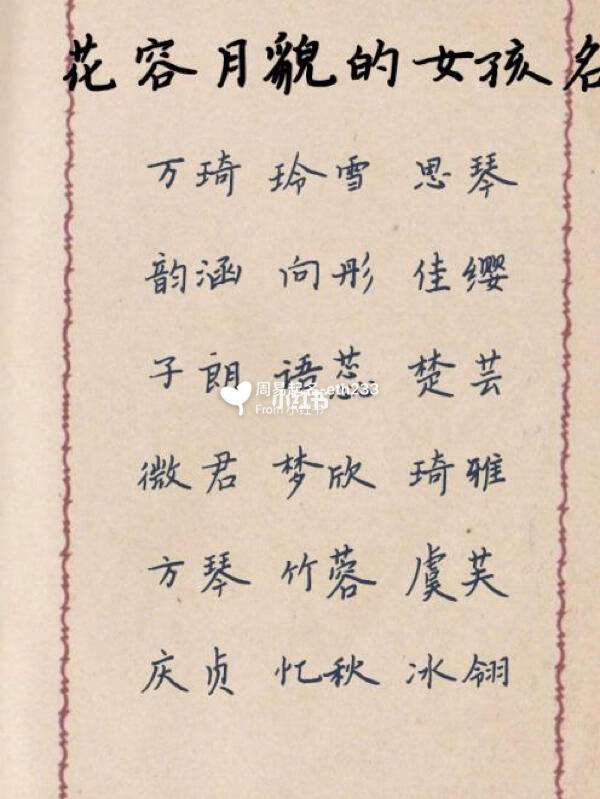 花容月貌的女孩名
万琦 玲雪 思琴
韵涵 向彤 佳缨
子朗 语蕊 楚芸
周易起名-eth233
小红书
From 小红书
微君 梦欣 琦雅
方琴 竹蓉 虞芙
庆贞 忆秋 冰翎